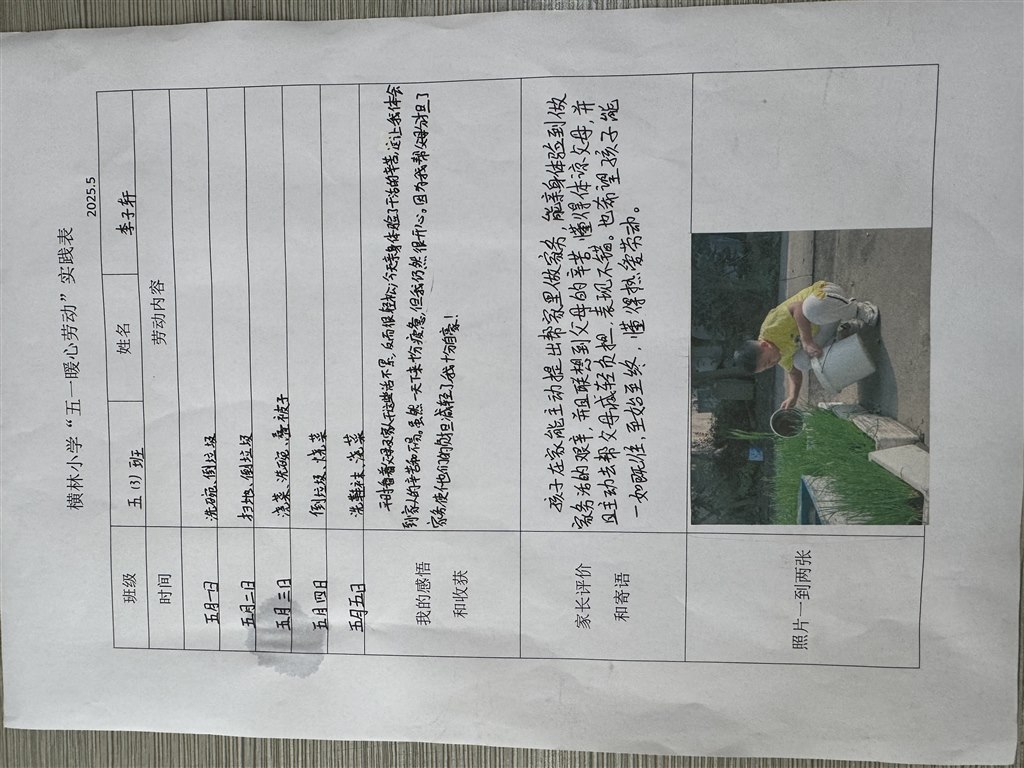 横林小学“五一暖心劳动”实践表
2025.5
班级 五(3)班 姓名 李子轩
时间 劳动内容
五月一日 洗碗、倒垃圾
五月二日 扫地、倒垃圾
五月三日 浇菜、洗碗、叠被子
五月四日 倒垃圾、拣菜
五月五日 洗鞋袜、浇菜
我的感悟
和收获
平时看着父母家人干这些活不累，反而很轻松，今天亲身体验了干活的辛苦，这让我体会
到家人的辛苦和不易。虽然一天下来十分疲惫，但我仍然很开心。因为我帮父母分担了
家务，使他们的负担减轻了，我十分自豪！
家长评价
和寄语
孩子在家能主动提出帮家里做家务，能亲身体验到做
家务活的艰辛，并且联想到父母的辛苦，懂得体谅父母，并
且主动去帮父母减轻负担，表现不错。也希望孩子能
一如既往，至始至终，懂得热爱劳动。
照片一到两张